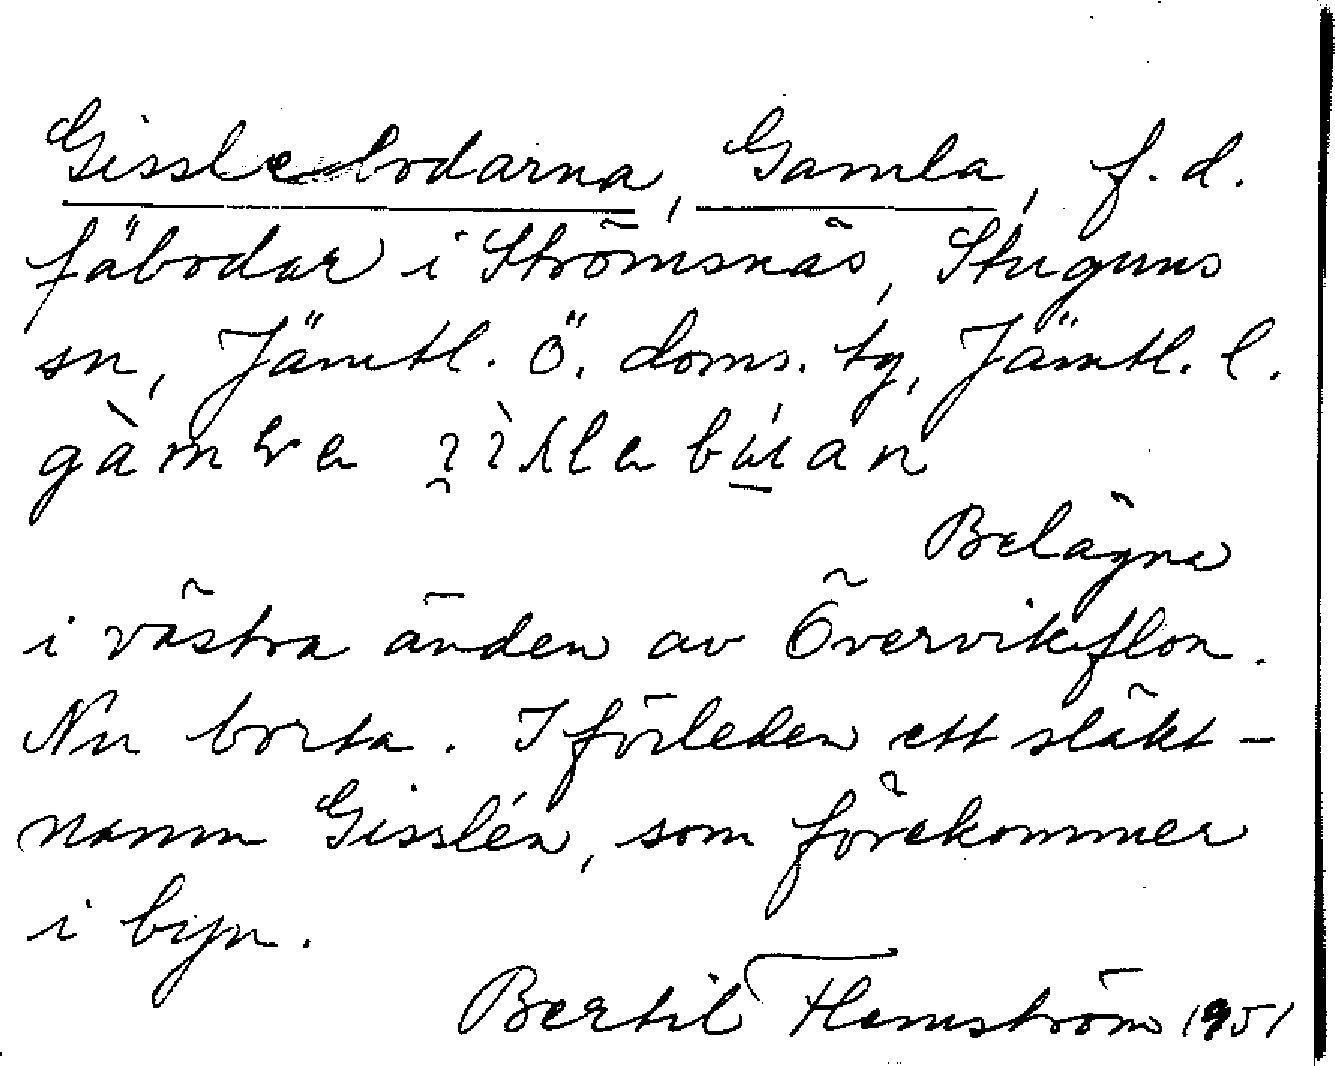 Gisslebodarna, Gamla, f.d.
fäbodar i Strömsnäs, Stuguns
sn, Jämtl. Ö. doms. tg, Jämtl. l.
Belägna
i västra änden av Överviksflon.
Nu borta. I förleden ett släkt-
namn Gisslén, som förekommer
i byn.
Bertil Flemström 1951